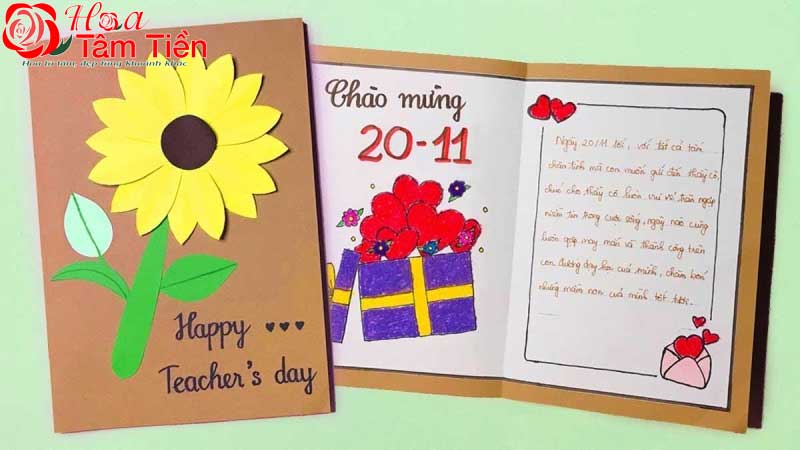 Hoa
Tâm Tiền
Hoa từ tâm, đẹp từng Khoảnh Khắc
Happy
Teacher's day
Chào mừng
20-11
Ngày 20/11 tới, với tất cả tấm
chân tình mà con muốn gửi đến thầy cô,
chúc cho thầy cô luôn vui vẻ tràn ngập
niềm tin trong cuộc sống, ngày nào cũng
luôn gặp may mắn và thành công trên
con đường dạy học của mình, chăm bón
những mầm non của mình tốt tươi.